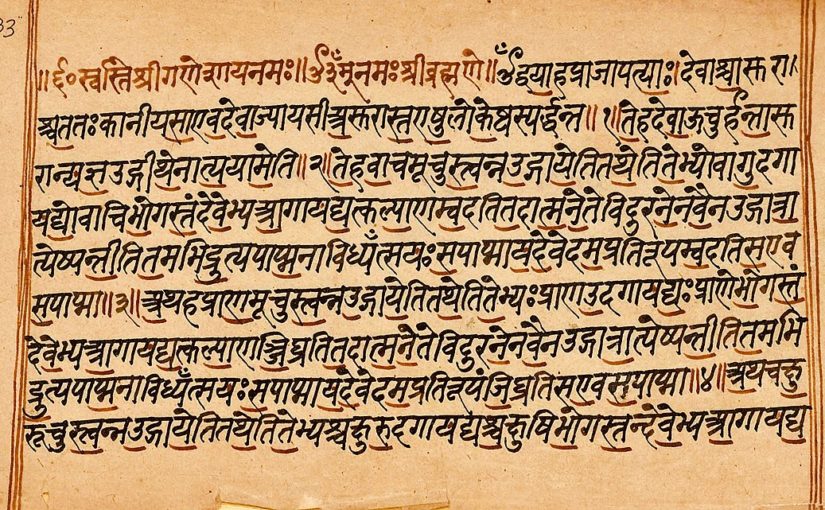 ॥६०स्वस्तिश्रीगणेशायनमः॥ॐनमःश्रीब्रह्मणे॥ॐद्वयाहप्राजापत्याः।देवाश्चासुरा।
श्चततःकानीयसाएवदेवाज्यायसीअसुरास्तएषुलोकेष्वस्पर्द्धन्त॥१॥तेहदेवाऊचुर्हन्तासु
रान्यज्ञउद्गीथेनात्ययामेति॥२॥तेहवाचमूचुस्त्वन्नउद्गायेतितथेतितेभ्योवागुदगा
यद्योवाचिभोगस्तंदेवेभ्यआगायद्यत्कल्याणम्वदतितदात्मनेतेविदुरनेनवैनउद्गात्रा
त्येष्यन्तीतितमभिद्रुत्यपाप्मनाविध्यँत्सयःसपाप्मायदेवेदमप्रतिरूपम्वदतिसएव
सपाप्मा॥३॥अथहप्राणमूचुस्त्वन्नउद्गायेतितथेतितेभ्यःप्राणउदगायद्यःप्राणेभोगस्तं
देवेभ्यआगायद्यत्कल्याणञ्जिघ्रतितदात्मनेतेविदुरनेनवैनउद्गात्रात्येष्यन्तीतितमभि
द्रुत्यपाप्मनाविध्यँत्सयःसपाप्मायदेवेदमप्रतिरूपंजिघ्रतिसएवसपाप्मा॥४॥अथचक्षु
रूचुस्त्वन्नउद्गायेतितथेतितेभ्यश्चक्षुरुदगायद्यश्चक्षुषिभोगस्तन्देवेभ्यआगायद्य